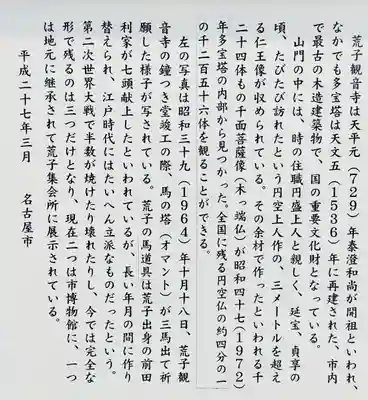 荒子観音寺は天平元（729）年泰澄和尚が開祖といわれ、
なかでも多宝塔は天文五（1536）年に再建された、市内
で最古の木造建築物で、国の重要文化財となっている。
山門の中には、時の住職円盛上人と親しく、延宝、貞享の
頃、たびたび訪れたという円空上人作の、三メートルを超え
る仁王像が収められている。その余材で作ったといわれる千
二十四体もの千面菩薩像（木っ端仏）が昭和四十七（1972）
年多宝塔の内部から見つかった。全国に残る円空仏の約四分の一
の千二百五十六体を観ることができる。
左の写真は昭和三十九（1964）年十月十八日、荒子観
音寺の鐘つき堂竣工の際、馬の塔（オマント）が三馬出て祈
願した様子が写されている。荒子の馬道具は荒子出身の前田
利家が七頭献上したといわれているが、長い年月の間に作り
替えられ、江戸時代にはたいへん立派なものだったという。
第二次世界大戦で半数が焼けたり壊れたりし、今では完全な
形で残るのは三つだけとなり、現在二つは市博物館に、一つ
は地元に継承されて荒子集会所に展示されている。
平成二十七年三月 名古屋市